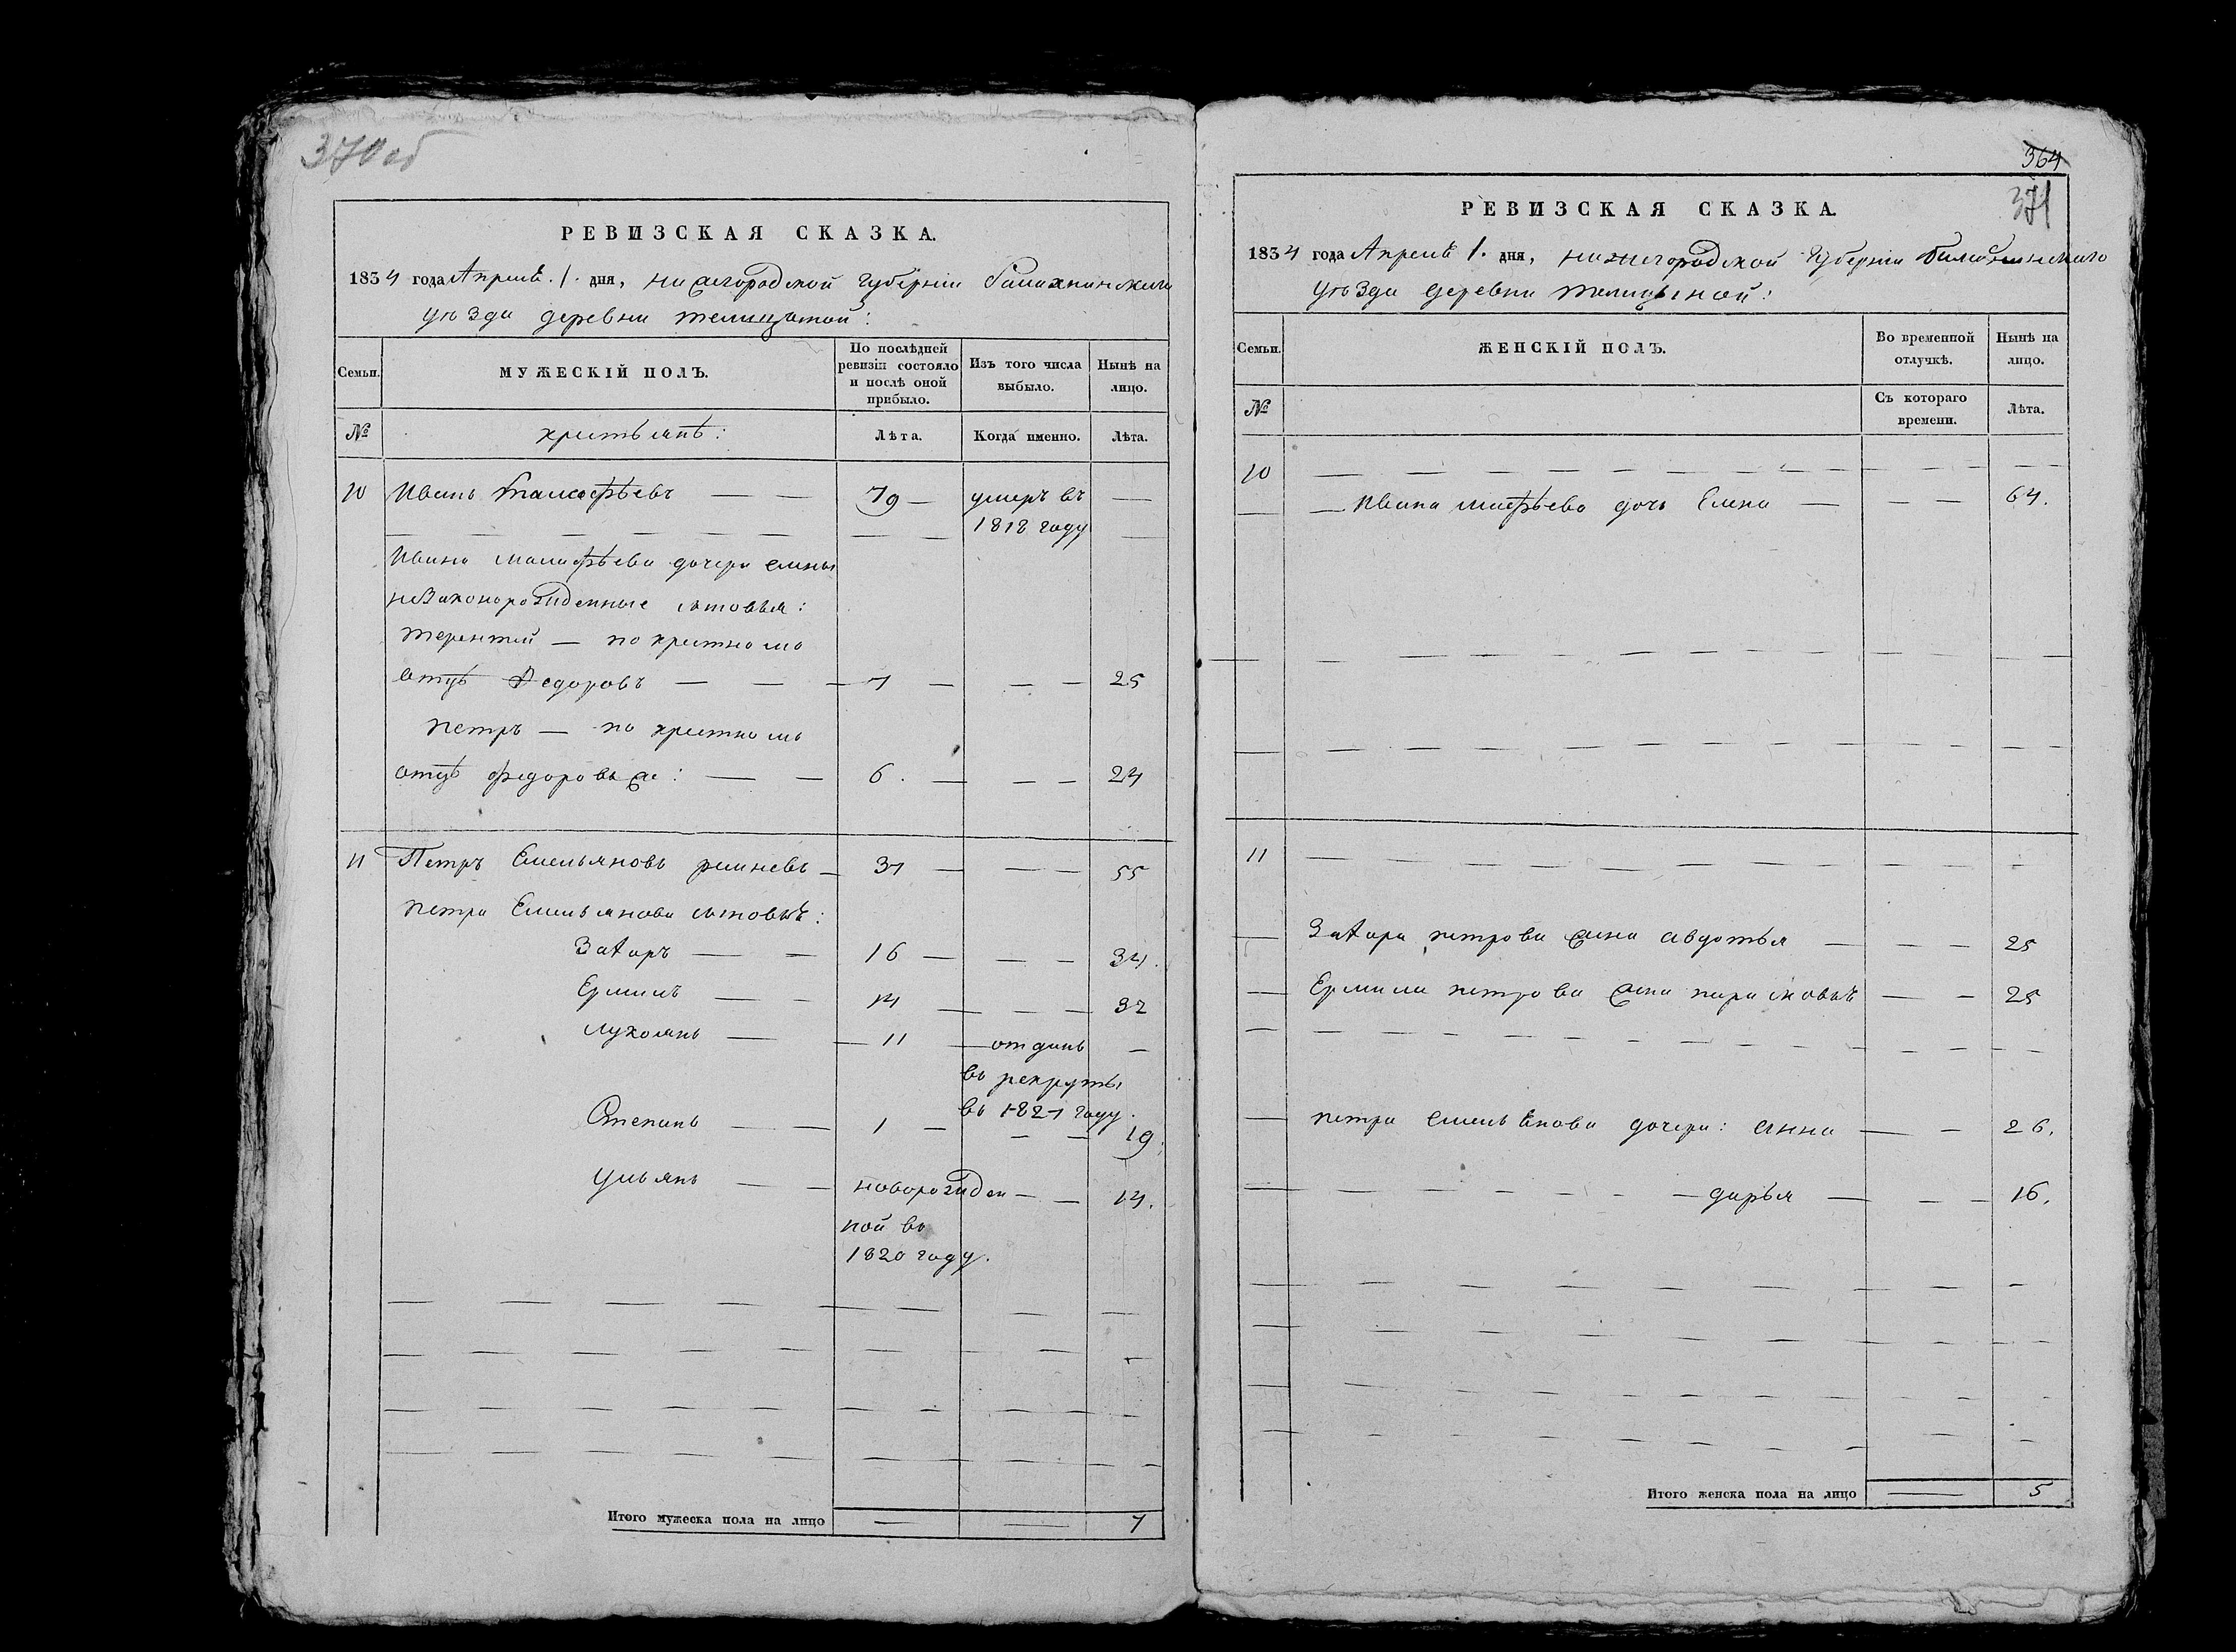 370 об
РЕВИЗСКАЯ СКАЗКА.
1834 года Апреля 1. дня, нижегородской губернiи балахнинскаго
уѣзда деревни
Семьи.
МУЖЕСКІЙ ПОЛЪ.
По послѣдней ревизіи состояло и послѣ оной прибыло.
Изъ того числа выбыло.
Нынѣ на лицо.
№
крестьянѣ:
Лѣта.
Когда именно.
Лѣта.
10 Иванъ — — 79 — умеръ въ —
1818 году
Ивана дочери елены
незаконорожденные сыновья:
терентий — по крестному
отцѣ Федоровъ — — — 7 — — — 25
петръ — по крестному
отцѣ федоровъ же: — — 6. — — — 24
11 Петръ Емельяновъ — 37 — — — 55
петра Емельянова сыновья:
Захаръ — — 16 — — — 34.
Ермилъ — — 14 — — — 32
Лукоянъ — — 11 — отданъ —
въ рекруты
въ 1827 году.
Степанъ — — 1 — — — 19.
Ульянъ — — новорожден — — 14.
ной въ
1820 году.
Итого мужеска пола на лицо — — 7
364
371
РЕВИЗСКАЯ СКАЗКА.
1834 года Апреля 1. дня, нижегородской Губернiи балахнинскаго
уѣзда деревни
Семьи.
ЖЕНСКІЙ ПОЛЪ.
Во временной отлучкѣ.
Нынѣ на лицо.
№
Съ котораго времени.
Лѣта.
10
— Ивана дочь Елена — — — 64.
11
Захара петрова жена авдотья — — — 25
Ермила петрова жена парасковья — — 25
петра емельянова дочери: анна — — 26.
— дарья — — — 16.
Итого женска пола на лицо — 5